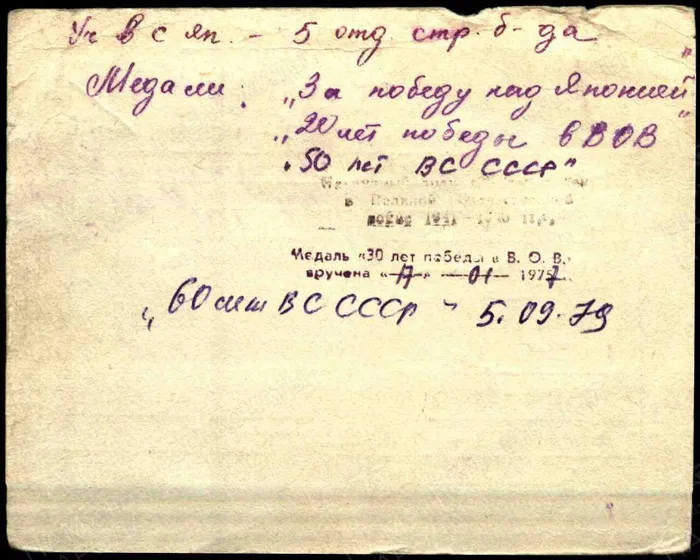 Уч В с Яп. - 5 отд стр. б-да
Медали: „За победу над Японией"
„20 лет победы в ВОВ"
„50 лет ВС СССР"
в Великой Отечественной
войне 1941-1945 гг.
Медаль «30 лет победы в В. О. В.»
вручена «17» — 01 — 1977.
„60 лет ВС СССР - 5.09.79